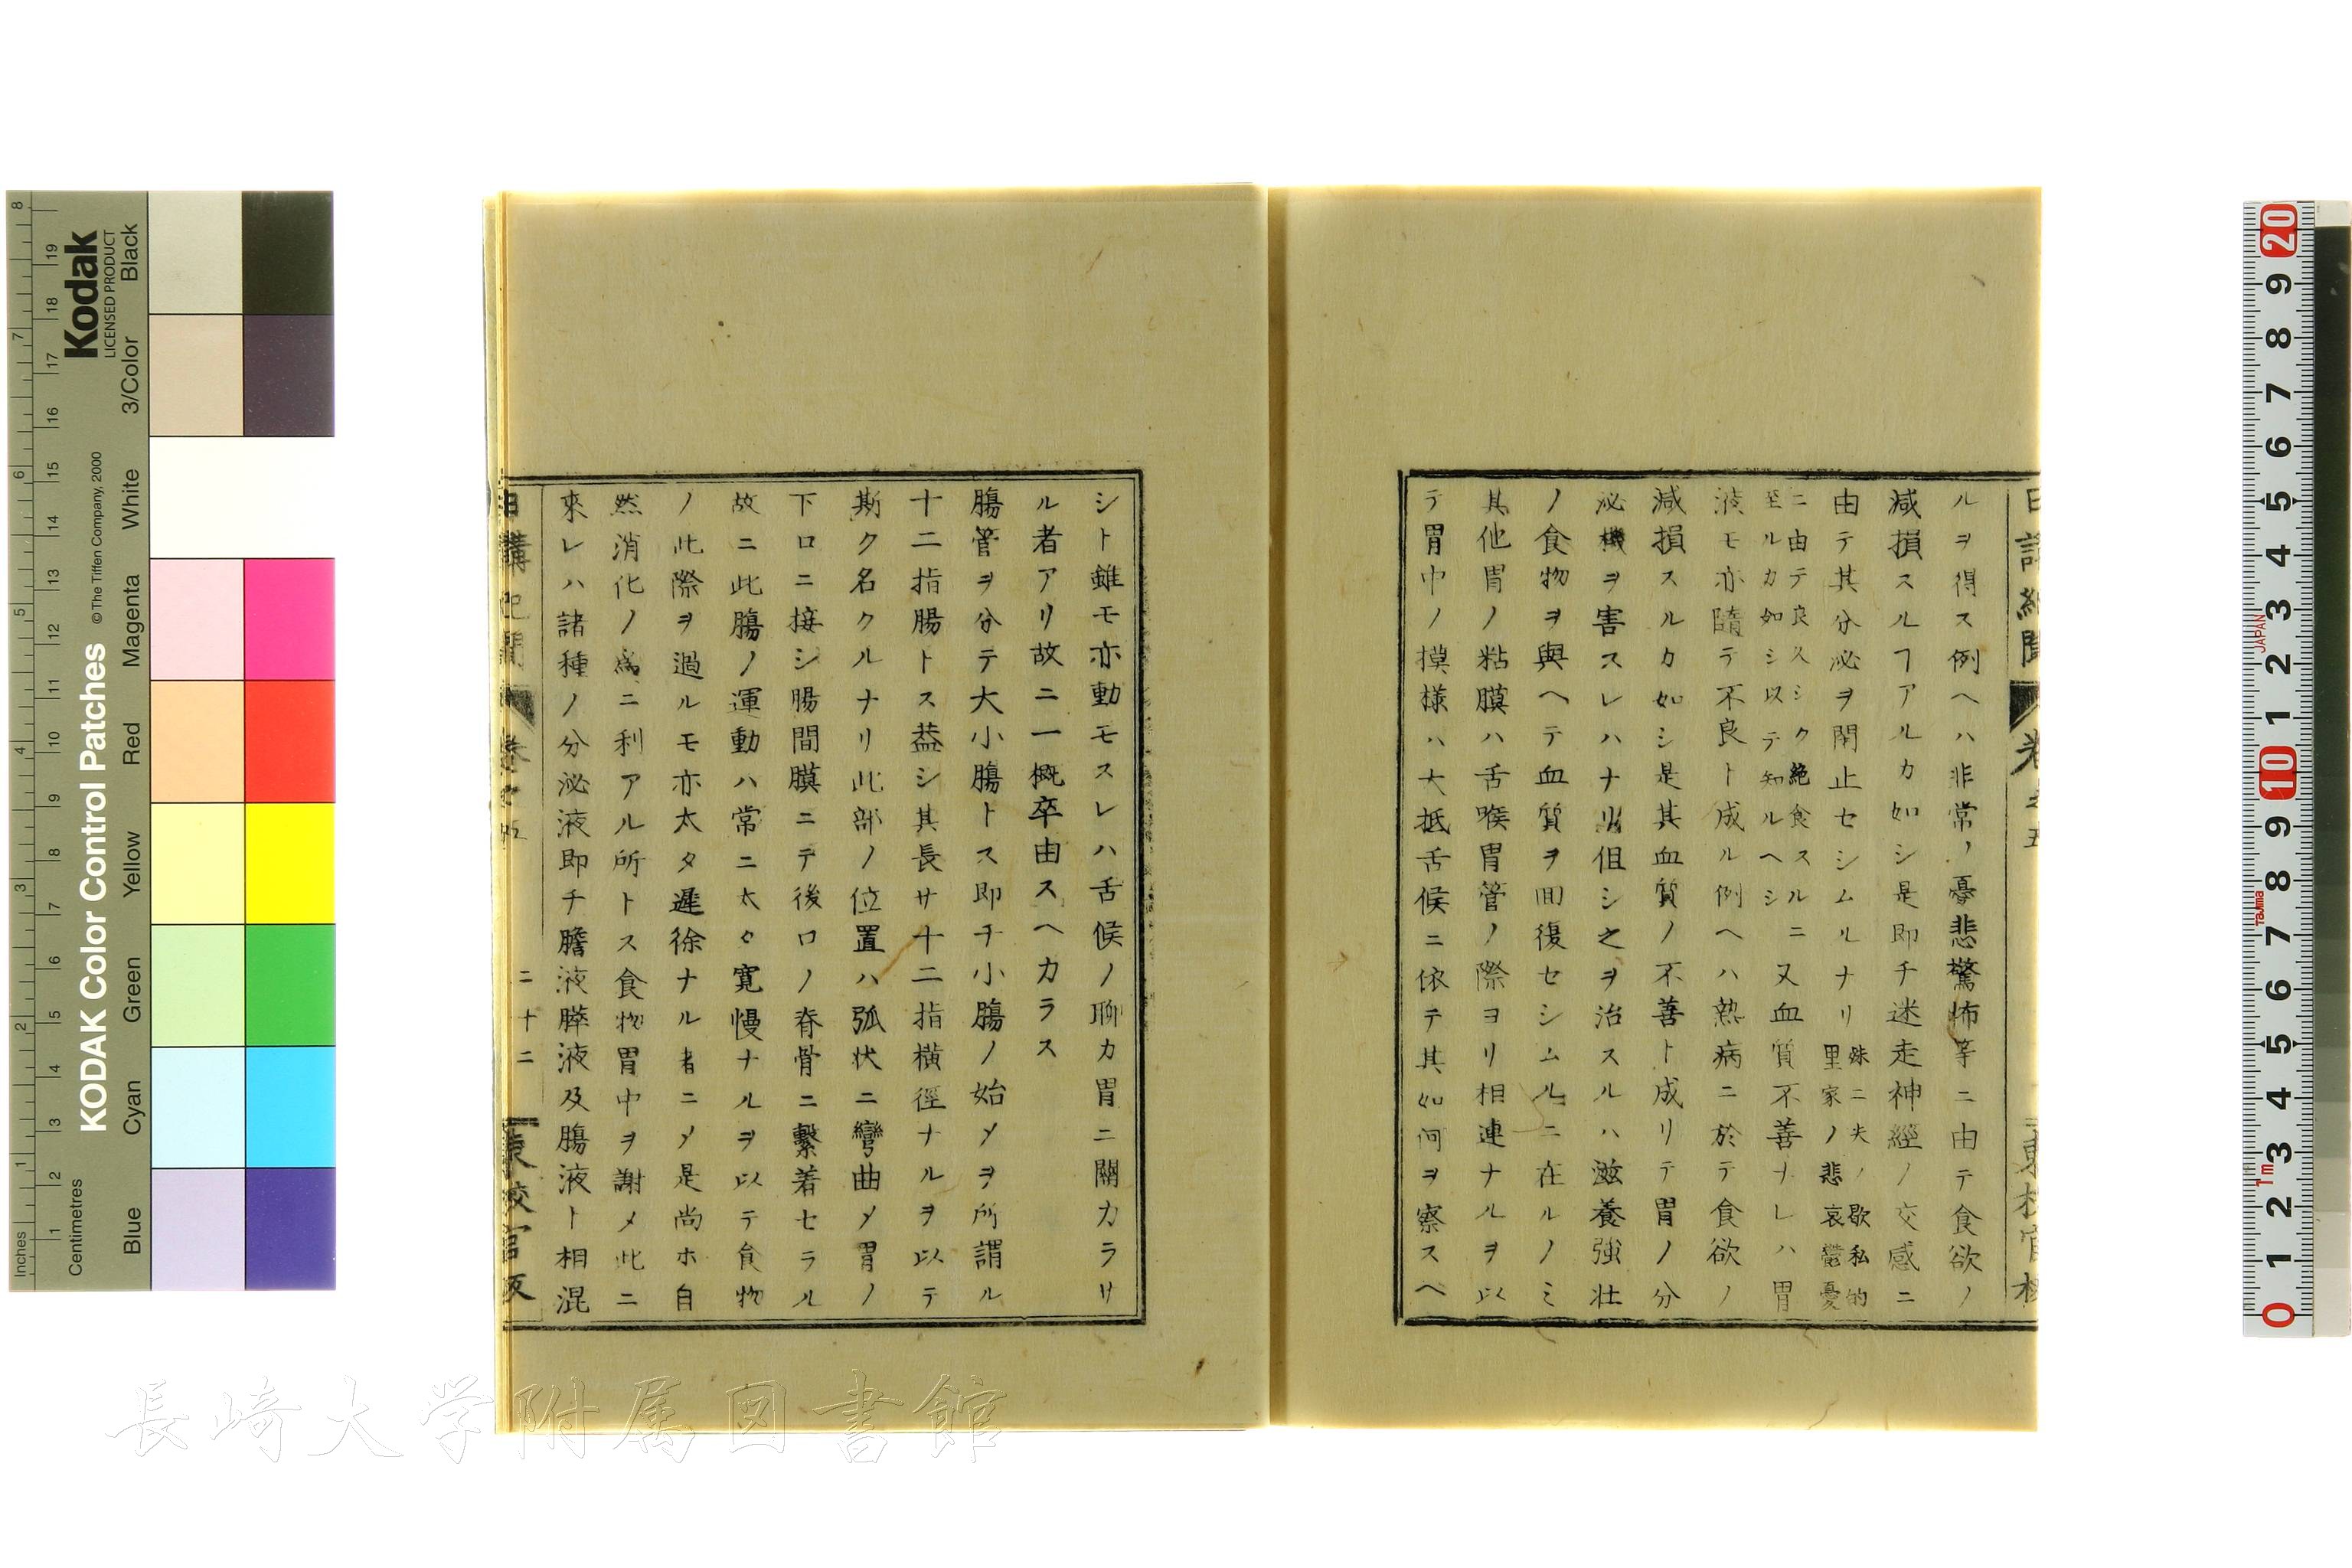 日講紀聞 卷之五
東校官板
ルヲ得ス例ヘハ非常ノ憂悲驚怖等ニ由テ食欲ノ
減損スルヿアルカ如シ是即チ迷走神經ノ交感ニ
由テ其分泌ヲ閉止セシムルナリ殊ニ夫ノ歇私的里家ノ悲哀鬱憂
ニ由テ良久シク絶食スルニ至ルカ如シ以テ知ルヘシ又血質不善ナレハ胃
液モ亦隨テ不良ト成ル例ヘハ熱病ニ於テ食欲ノ
減損スルカ如シ是其血質ノ不善ト成リテ胃ノ分
泌機ヲ害スレハナリ但シ之ヲ治スルハ滋養強壮
ノ食物ヲ與ヘテ血質ヲ囬復セシムルニ在ルノミ
其他胃ノ粘膜ハ舌喉胃管ノ際ヨリ相連ナルヲ以
テ胃中ノ摸様ハ大抵舌候ニ依テ其如何ヲ察スヘ
シト雖モ亦動モスレハ舌候ノ聊カ胃ニ關カラサ
ル者アリ故ニ一概卒由スヘカラス
腸管ヲ分テ大小腸トス即チ小腸ノ始メヲ所謂ル
十二指腸トス蓋シ其長サ十二指横徑ナルヲ以テ
斯ク名クルナリ此部ノ位置ハ弧状ニ彎曲メ胃ノ
下口ニ接シ腸間膜ニテ後口ノ脊骨ニ繋着セラル
故ニ此腸ノ運動ハ常ニ太タ寛慢ナルヲ以テ食物
ノ此際ヲ過ルモ亦太タ遲徐ナル者ニメ是尚ホ自
然消化ノ爲ニ利アル所トス食物胃中ヲ謝メ此ニ
來レハ諸種ノ分泌液即チ膽液膵液及腸液ト相混
日講紀聞 卷之五 二十二 東校官板
KODAK Color Control Patches
© The Tiffen Company, 2000
Kodak
LICENSED PRODUCT
Inches
Centimetres
Blue Cyan Green Yellow Red Magenta White 3/Color Black
JAPAN
Tajima
1m
長崎大学附属図書館